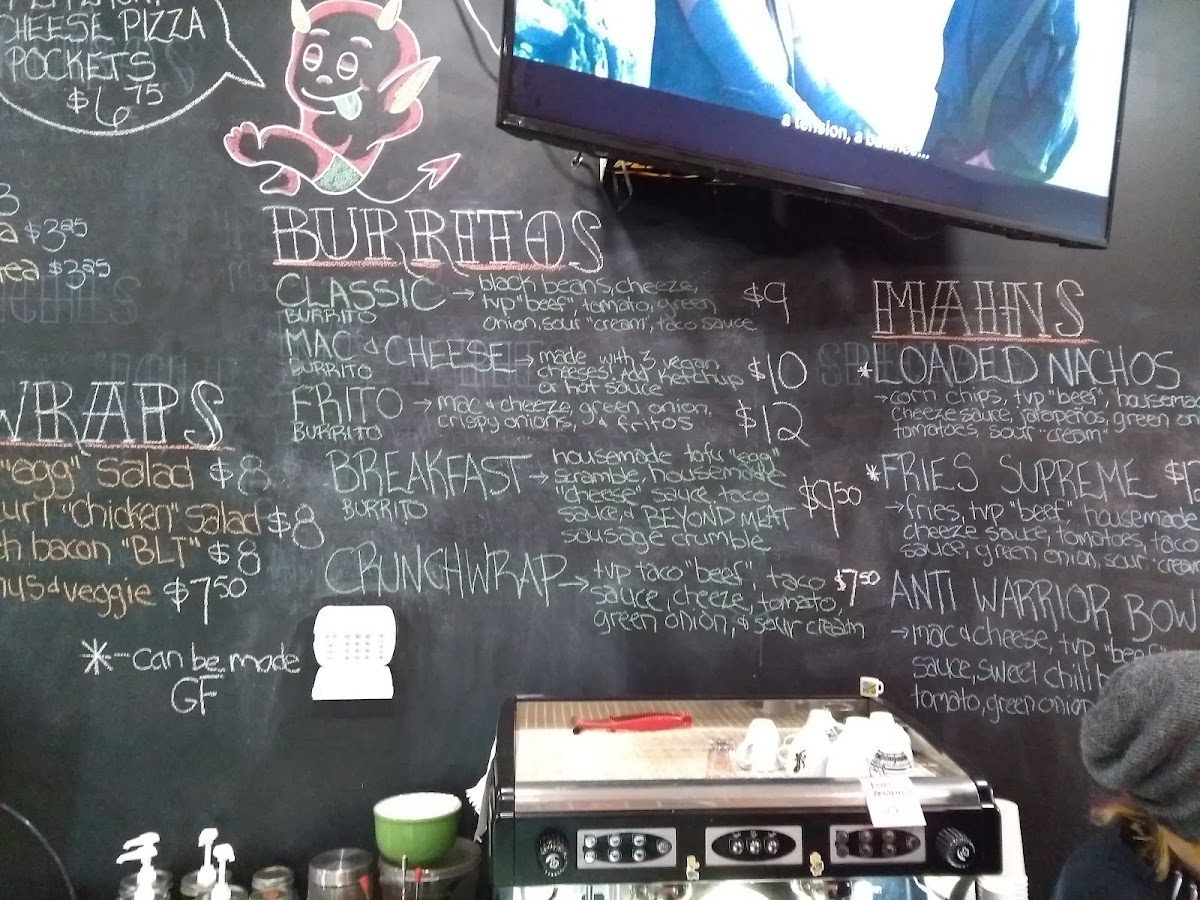 CHEESE PIZZA
POCKETS
$6.75
$3.25
$3.25
WRAPS
"egg" salad $8
"chicken" salad $8
bacon "BLT" $8
& veggie $7.50
*-can be made
GF
BURRITOS
CLASSIC → black beans, cheeze,
BURRITO tvp "beef", tomato, green
onion, sour "cream", taco sauce $9
MAC & CHEESE → made with 3 vegan
BURRITO cheeses! Add ketchup
or hot sauce $10
FRITO → mac & cheeze, green onion,
BURRITO crispy onions, & fritos $12
BREAKFAST → housemade tofu "egg"
BURRITO scramble, housemade
"cheese" sauce, taco
sauce, & BEYOND MEAT
sausage crumble $9.50
CRUNCHWRAP → tvp taco "beef", taco
sauce, cheeze, tomato,
green onion, & sour cream $7.50
a tension, a balance...
MAINS
*LOADED NACHOS
→ corn chips, tvp "beef",
cheeze sauce, jalapeños, green
tomatoes, sour "cream"
*FRIES SUPREME
→ fries, tvp "beef", housemade
cheeze sauce, tomatoes, taco
sauce, green onion, sour "cream
ANTI WARRIOR BOWL
→ mac & cheese, tvp "beef"
sauce, sweet chili
tomato, green onion